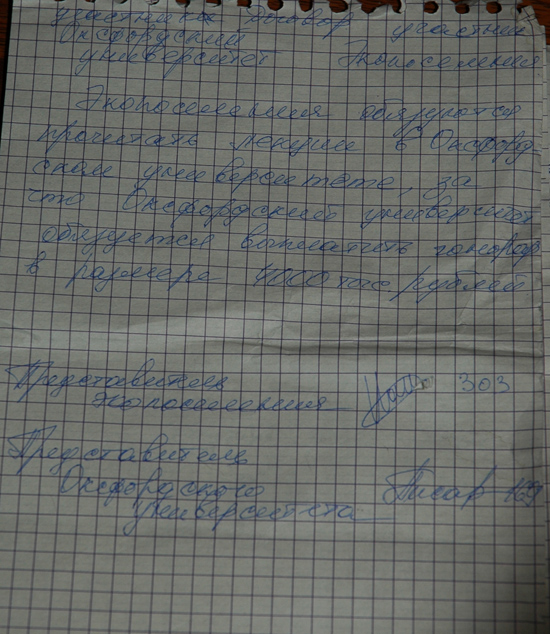 участники Договор участник
Оксфордский
университет Экопоселения
Экопоселения обязуются
прочитать лекции в Оксфорд
ском университете, за
что Оксфордский университет
обязуется выплатить гонорар
в размере 4000 тыс рублей
Представитель
экопоселения 303
Представитель
Оксфордского Писар 169
университета